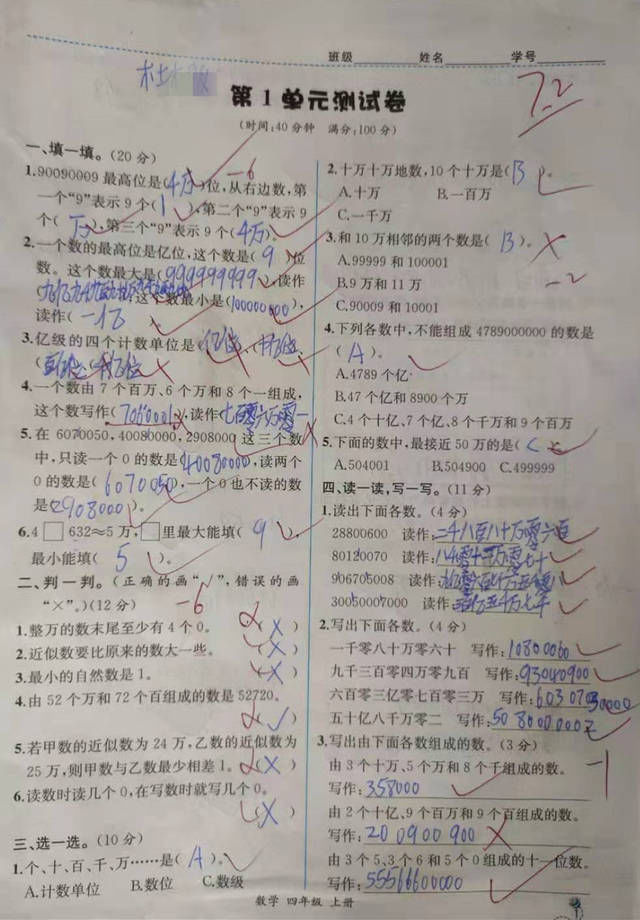 班级 姓名 学号
第1单元测试卷
72
(时间:40分钟 满分:100分)
一、填一填。(20分)
-6
1.90090009最高位是(千万)位,从右边数,第
一个“9”表示9个(1),第二个“9”表示9
个(万),第三个“9”表示9个(千万)。
2.一个数的最高位是亿位,这个数是(9)位
数。这个数最大是(999999999),读作
,这个数最小是(100000000),
读作(一亿)
3.亿级的四个计数单位是(亿位、十亿位、
4.一个数由7个百万、6个万和8个一组成,
这个数写作(),读作(
5.在6070050,40080000,2908000这三个数
中,只读一个0的是(40080000),读两个
0的是(6070050),一个0也不读的数
是(2908000)。
6.4□632≈5万,□里最大能填(9),
最小能填(5)。
二、判一判。(正确的画“√”,错误的画
“×”。)(12分)
-6
1.整万的数末尾至少有4个0。(×)
2.近似数要比原来的数大一些。(×)
3.最小的自然数是1。(×)
4.由52个万和72个百组成的数是52720。
(√)
5.若甲数的近似数为24万,乙数的近似数为
25万,则甲数与乙数最少相差1。(×)
6.读数时读几个0,在写数时就写几个0。
(×)
三、选一选。(10分)
1.个、十、百、千、万……是(A)。
A.计数单位 B.数位 C.数级
2.十万十万地数,10个十万是(B)
A.十万 B.一百万
C.一千万
3.和10万相邻的两个数是(B)。
A.99999和100001
B.9万和11万
-2
C.90009和10001
4.下列各数中,不能组成4789000000的数是
(A)。
A.4789个亿
B.47个亿和8900个万
C.4个十亿、7个亿、8个千万和9个百万
5.下面的数中,最接近50万的是(C)
A.504001 B.504900 C.499999
四、读一读,写一写。(11分)
1.读出下面各数。(4分)
28800600 读作:二千八百八十万零六百
80120070 读作:八千零十二万零七十
906705008 读作:
30050007000 读作:
2.写出下面各数。(4分)
一千零八十万零六十 写作:10800060
九千三百零四万零九百 写作:93040900
六百零三亿零七百零三万 写作:60307030000
五十亿八千万零二 写作:5080000002
3.写出由下面各数组成的数。(3分)
-1
由3个十万、5个万和8个千组成的数。
写作:358000
由2个十亿、9个百万和9个百组成的数。
写作:200900900
由3个5、3个6和5个0组成的十一位数。
写作:55566600000
数学 四年级 上册